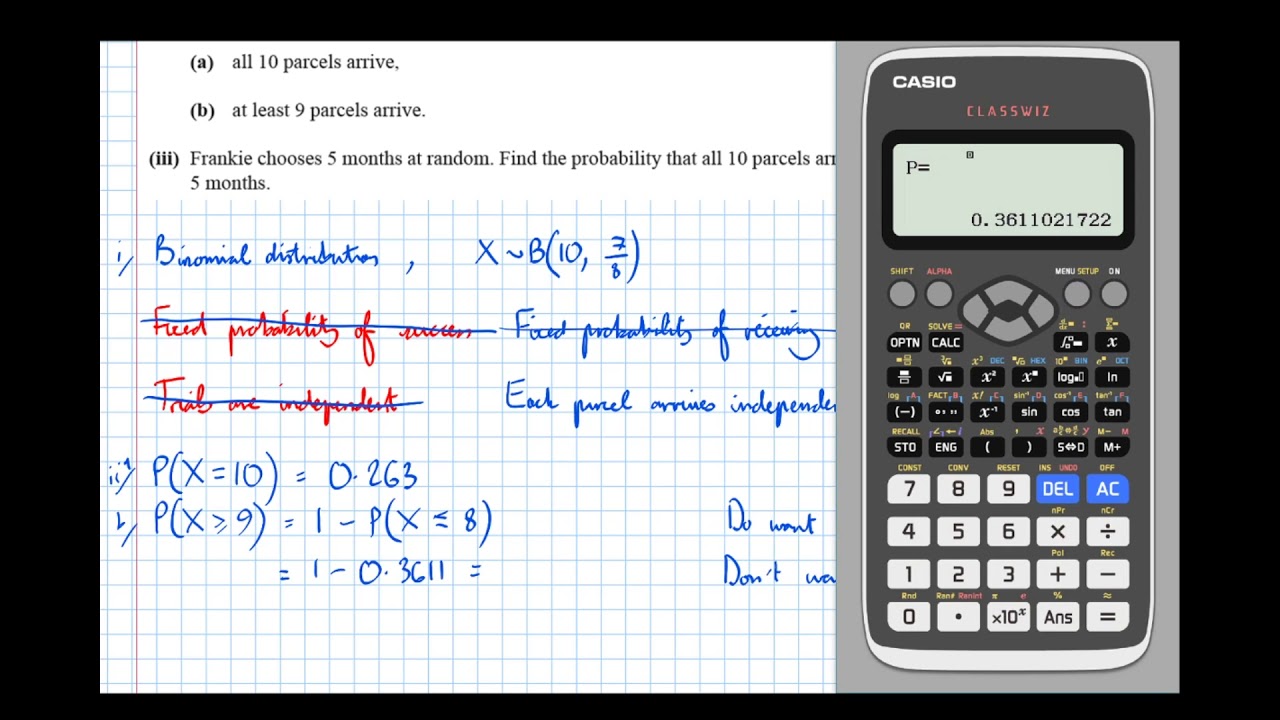 (a) all 10 parcels arrive,
(b) at least 9 parcels arrive.
(iii) Frankie chooses 5 months at random. Find the probability that all 10 parcels arr
5 months.
i) Binomial distribution , X ~ B(10, 7/8)
Fixed probability of success Fixed probability of receiving
Trials are independent Each parcel arrives independen
P(X = 10) = 0.263
P(X ≥ 9) = 1 - P(X ≤ 8) Do want
= 1 - 0.3611 = Don't wa
CASIO
CLASSWIZ
P=
0.3611021722
SHIFT ALPHA MENU SETUP ON
QR SOLVE =
OPTN CALC x
x³ DEC HEX 10■ BIN e■ OCT
√■ x² x■ log ln
log A FACT B x! C sin⁻¹ D cos⁻¹ E tan⁻¹ F
(−) x⁻¹ sin cos tan
RECALL Abs , x y M− M
STO ENG ( ) S⇔D M+
CONST CONV RESET INS UNDO OFF
7 8 9 DEL AC
nPr nCr
4 5 6 × ÷
Pol Rec
1 2 3 + −
Rnd Ran# RanInt π e % ≈
0 • ×10ˣ Ans =